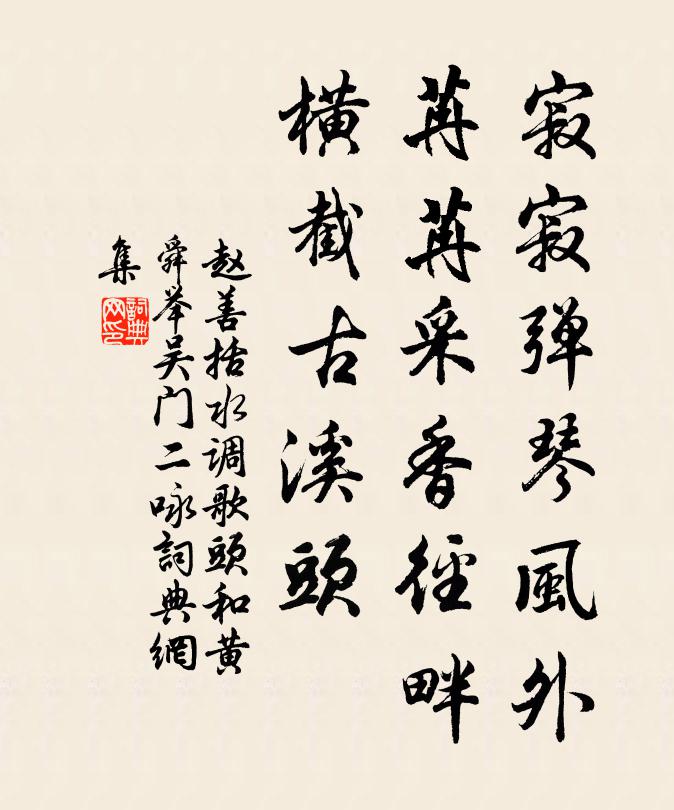 寂寂弹琴風外
苒苒采香徑畔
橫截古溪頭
赵善括水调歌頭和黄
舜举吴门二咏詞典網
集
詞典
网印